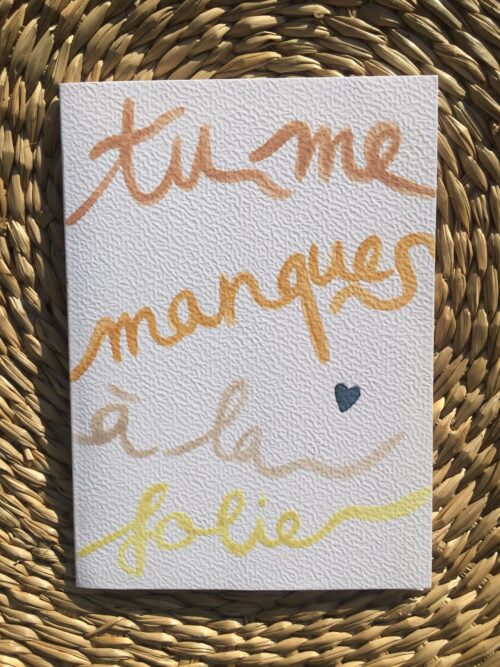 tu me
manques
à la
folie